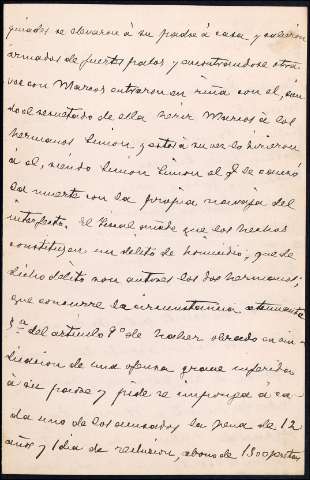 guados se llevaron á su padre á casa y salieron
armados de fuertes palos y encontrandose otra
vez con Marcos entraron en riña con el, sien
do el resultado de ella herir Marcos á los
hermanos Simon y estos á su vez lo hirieron
á el, siendo Simon Simon el q̃ le causó
la muerte con la propia navaja del
interfecto. El fiscal añade que los hechos
constituyen un delito de homicidio, que de
dicho delito son autores los dos hermanos,
que concurre la circunstancia atenuante
5ª del artículo 9º de haber obrado en vin
dicacion de una ofensa grave inferida
á su padre y pide se imponga á ca
da uno de los acusados la pena de 12
años y 1 dia de reclusion, abono de 1500 pesetas